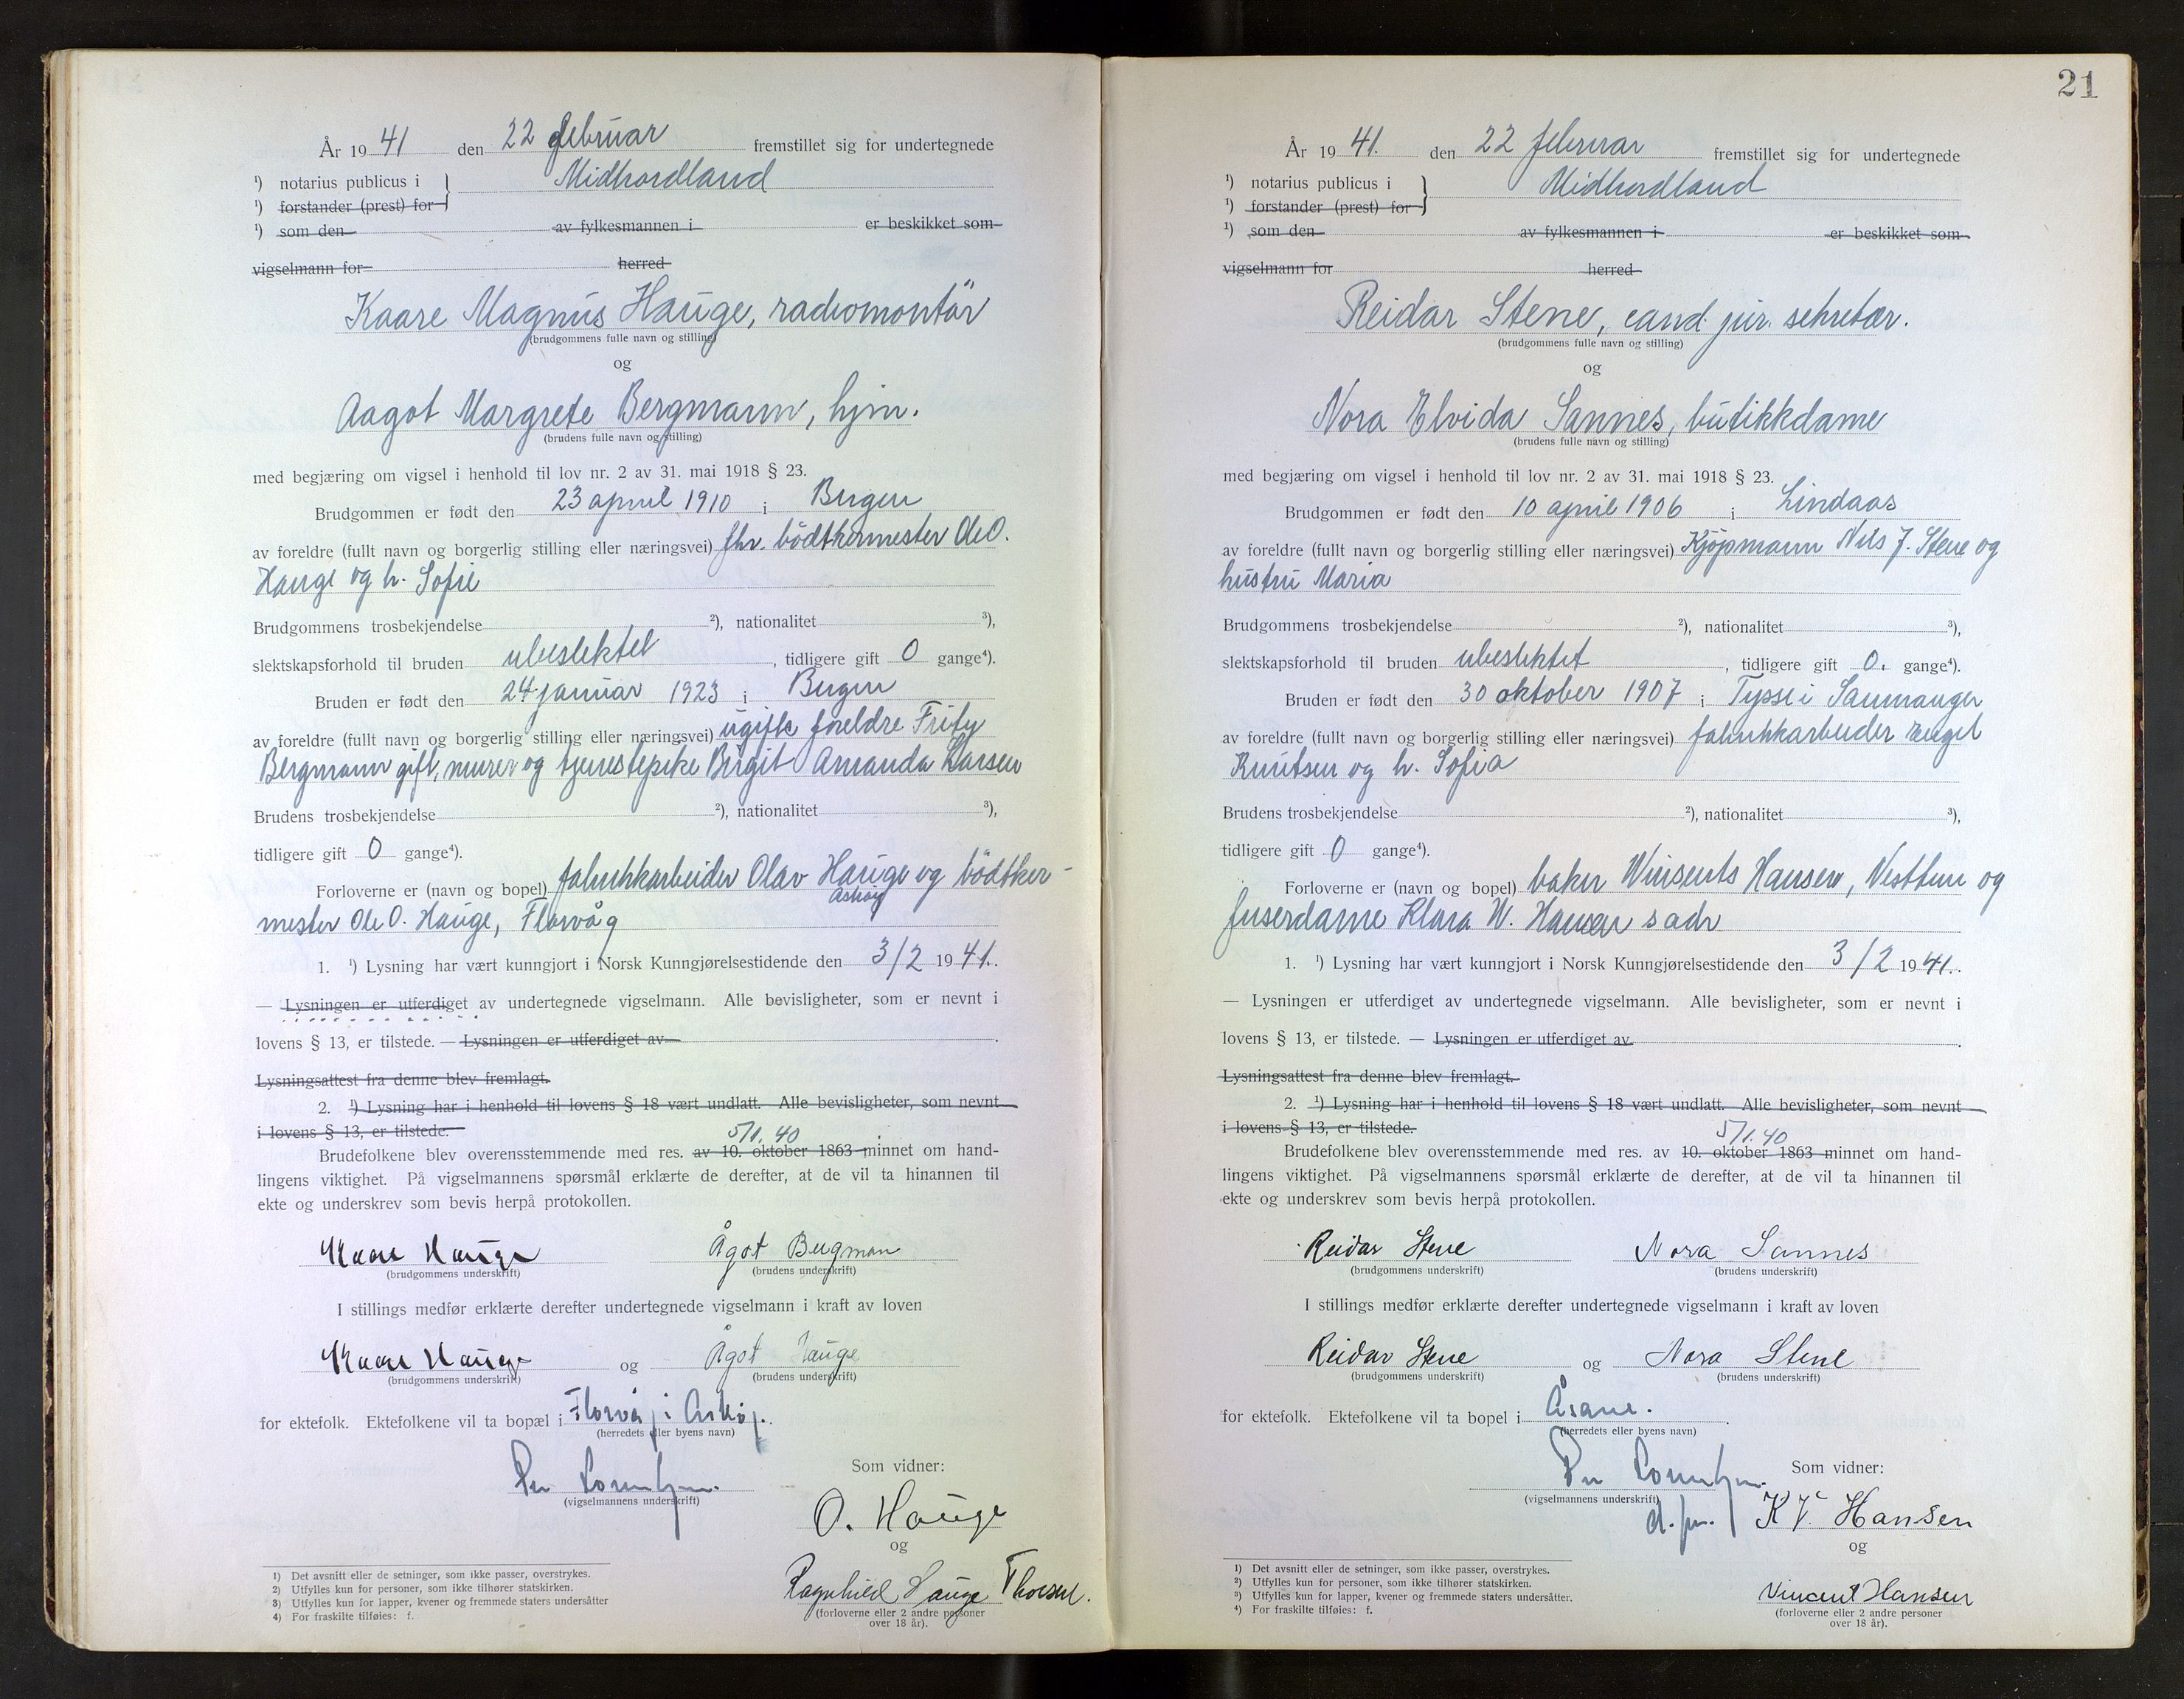 År 1941 den 22 februar fremstillet sig for undertegnede
¹) notarius publicus i } Midhordland
¹) forstander (prest) for
¹) som den av fylkesmannen i er beskikket som
vigselmann for herred
Kaare Magnus Hauge, radiomontör
(brudgommens fulle navn og stilling)
og
Aagot Margrete Bergmann, hjm.
(brudens fulle navn og stilling)
med begjæring om vigsel i henhold til lov nr. 2 av 31. mai 1918 § 23.
Brudgommen er født den 23 april 1910 i Bergen
av foreldre (fullt navn og borgerlig stilling eller næringsvei) fhv. bödtkermester Ole O.
Hauge og h. Sofie
Brudgommens trosbekjendelse ²), nationalitet ³),
slektskapsforhold til bruden ubeslektet, tidligere gift 0 gange⁴).
Bruden er født den 24 januar 1923 i Bergen
av foreldre (fullt navn og borgerlig stilling eller næringsvei) ugifte foreldre Fritz
Bergmann gift, murer og tjenestepike Birgit Amanda Larsen
Brudens trosbekjendelse ²), nationalitet ³),
tidligere gift 0 gange⁴).
Forloverne er (navn og bopel) fabrikkarbeider Olav Hauge og bödtker-
Askøy
mester Ole O. Hauge, Florvåg
1. ¹) Lysning har vært kunngjort i Norsk Kunngjørelsestidende den 3/2 1941.
— Lysningen er utferdiget av undertegnede vigselmann. Alle bevisligheter, som er nevnt i
lovens § 13, er tilstede. — Lysningen er utferdiget av .
Lysningsattest fra denne blev fremlagt.
2. ¹) Lysning har i henhold til lovens § 18 vært undlatt. Alle bevisligheter, som nevnt
i lovens § 13, er tilstede.
5/1.40
Brudefolkene blev overensstemmende med res. av 10. oktober 1863 minnet om hand-
lingens viktighet. På vigselmannens spørsmål erklærte de derefter, at de vil ta hinannen til
ekte og underskrev som bevis herpå protokollen.
Kaare Hauge Ågot Bergman
(brudgommens underskrift) (brudens underskrift)
I stillings medfør erklærte derefter undertegnede vigselmann i kraft av loven
Kaare Hauge og Ågot Hauge
(brudgommens underskrift) (brudens underskrift)
for ektefolk. Ektefolkene vil ta bopæl i Florvåg i Askøy.
(herredets eller byens navn)
Per
(vigselmannens underskrift)
Som vidner:
O. Hauge
og
Ragnhild Hauge Thorsen.
(forloverne eller 2 andre personer
over 18 år).
1) Det avsnitt eller de setninger, som ikke passer, overstrykes.
2) Utfylles kun for personer, som ikke tilhører statskirken.
3) Utfylles kun for lapper, kvener og fremmede staters undersåtter
4) For fraskilte tilføies: f.
21
År 1941. den 22 februar fremstillet sig for undertegnede
¹) notarius publicus i } Midhordland
¹) forstander (prest) for
¹) som den av fylkesmannen i er beskikket som
vigselmann for herred
Reidar Stene, cand. jur. sekretær.
(brudgommens fulle navn og stilling)
og
Nora Elvida Sannes, butikkdame
(brudens fulle navn og stilling)
med begjæring om vigsel i henhold til lov nr. 2 av 31. mai 1918 § 23.
Brudgommen er født den 10 april 1906 i Lindaas
av foreldre (fullt navn og borgerlig stilling eller næringsvei) Kjøpmann Nils J. Stene og
hustru Maria
Brudgommens trosbekjendelse ²), nationalitet ³),
slektskapsforhold til bruden ubeslektet, tidligere gift 0. gange⁴).
Bruden er født den 30 oktober 1907 i Tysse i Samnanger
av foreldre (fullt navn og borgerlig stilling eller næringsvei) fabrikkarbeider Engel
Knutsen og h. Sofia
Brudens trosbekjendelse ²), nationalitet ³),
tidligere gift 0 gange⁴).
Forloverne er (navn og bopel) baker Winsents Hansen, Nesttun og
friserdame Klara W. Hansen s adr
1. ¹) Lysning har vært kunngjort i Norsk Kunngjørelsestidende den 3/2 1941.
— Lysningen er utferdiget av undertegnede vigselmann. Alle bevisligheter, som er nevnt i
lovens § 13, er tilstede. — Lysningen er utferdiget av .
Lysningsattest fra denne blev fremlagt.
2. ¹) Lysning har i henhold til lovens § 18 vært undlatt. Alle bevisligheter, som nevnt
i lovens § 13, er tilstede.
5/1.40
Brudefolkene blev overensstemmende med res. av 10. oktober 1863 minnet om hand-
lingens viktighet. På vigselmannens spørsmål erklærte de derefter, at de vil ta hinannen til
ekte og underskrev som bevis herpå protokollen.
Reidar Stene Nora Sannes
(brudgommens underskrift) (brudens underskrift)
I stillings medfør erklærte derefter undertegnede vigselmann i kraft av loven
Reidar Stene og Nora Stene
(brudgommens underskrift) (brudens underskrift)
for ektefolk. Ektefolkene vil ta bopel i Åsane.
(herredets eller byens navn)
Per
(vigselmannens underskrift)
d. fm.
Som vidner:
K V. Hansen
og
Vincent Hansen
(forloverne eller 2 andre personer
over 18 år).
1) Det avsnitt eller de setninger, som ikke passer, overstrykes.
²) Utfylles kun for personer, som ikke tilhører statskirken.
³) Utfylles kun for lapper, kvener og fremmede staters undersåtter.
⁴) For fraskilte tilføies: f.